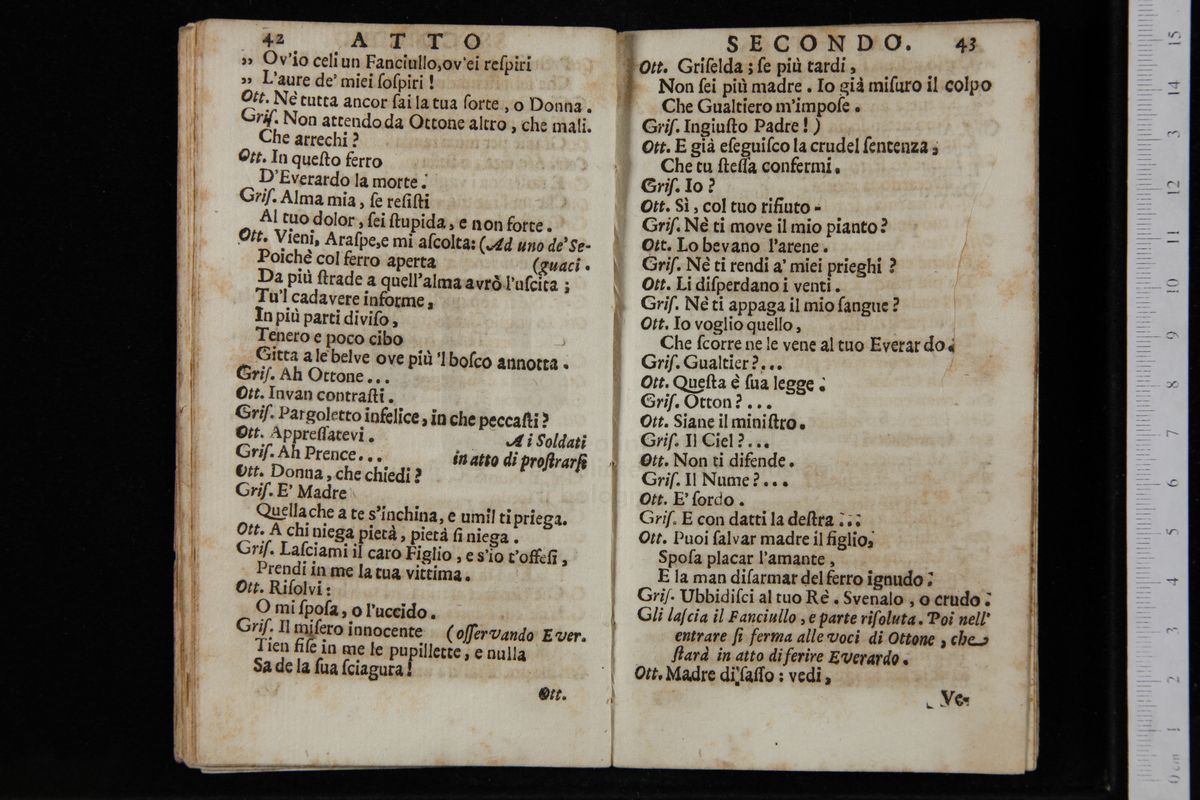 42 ATTO
„ Ov'io celi un Fanciullo, ov'ei reſpiri
„ L'aure de' miei ſoſpiri !
Ott. Nè tutta ancor ſai la tua ſorte , o Donna .
Griſ. Non attendo da Ottone altro , che mali.
Che arrechi ?
Ott. In queſto ferro
D'Everardo la morte .
Griſ. Alma mia , ſe reſiſti
Al tuo dolor , ſei ſtupida , e non forte .
Ott. Vieni, Araſpe,e mi aſcolta: (Ad uno de' Se-
Poichè col ferro aperta (guaci .
Da più ſtrade a quell'alma avrò l'uſcita ;
Tu'l cadavere informe ,
In più parti diviſo ,
Tenero e poco cibo
Gitta a le belve ove più 'l boſco annotta .
Griſ. Ah Ottone . . .
Ott. Invan contraſti .
Griſ. Pargoletto infelice, in che peccaſti ?
Ott. Appreſſatevi . A i Soldati
Griſ. Ah Prence . . . in atto di proſtrarſi
Ott. Donna , che chiedi ?
Griſ. E' Madre
Quella che a te s'inchina, e umil ti priega.
Ott. A chi niega pietà , pietà ſi niega .
Griſ. Laſciami il caro Figlio , e s'io t'offeſi ,
Prendi in me la tua vittima .
Ott. Riſolvi :
O mi ſpoſa, o l'uccido .
Griſ. Il miſero innocente (oſſervando Ever.
Tien fiſe in me le pupillette, e nulla
Sa de la ſua ſciagura !
Ott.
SECONDO. 43
Ott. Griſelda ; ſe più tardi ,
Non ſei più madre . Io già miſuro il colpo
Che Gualtiero m'impoſe .
Griſ. Ingiuſto Padre ! )
Ott. E già eſeguiſco la crudel ſentenza ,
Che tu ſteſſa confermi .
Griſ. Io ?
Ott. Sì , col tuo rifiuto -
Griſ. Nè ti move il mio pianto ?
Ott. Lo bevano l'arene .
Griſ. Nè ti rendi a' miei prieghi ?
Ott. Li diſperdano i venti .
Griſ. Nè ti appaga il mio ſangue ?
Ott. Io voglio quello ,
Che ſcorre ne le vene al tuo Everardo .
Griſ. Gualtier ? . . .
Ott. Queſta è ſua legge .
Griſ. Otton ? . . .
Ott. Siane il miniſtro .
Griſ. Il Ciel ? . . .
Ott. Non ti difende .
Griſ. Il Nume ? . . .
Ott. E' ſordo .
Griſ. E con datti la deſtra . . .
Ott. Puoi ſalvar madre il figlio,
Spoſa placar l'amante ,
E la man diſarmar del ferro ignudo .
Griſ. Ubbidiſci al tuo Rè . Svenalo , o crudo .
Gli laſcia il Fanciullo , e parte riſoluta . Poi nell'
entrare ſi ferma alle voci di Ottone , che
ſtarà in atto di ferire Everardo .
Ott. Madre di ſaſſo : vedi ,
Ve-
0 cm 1 2 3 4 5 6 7 8 9 10 11 12 13 14 15